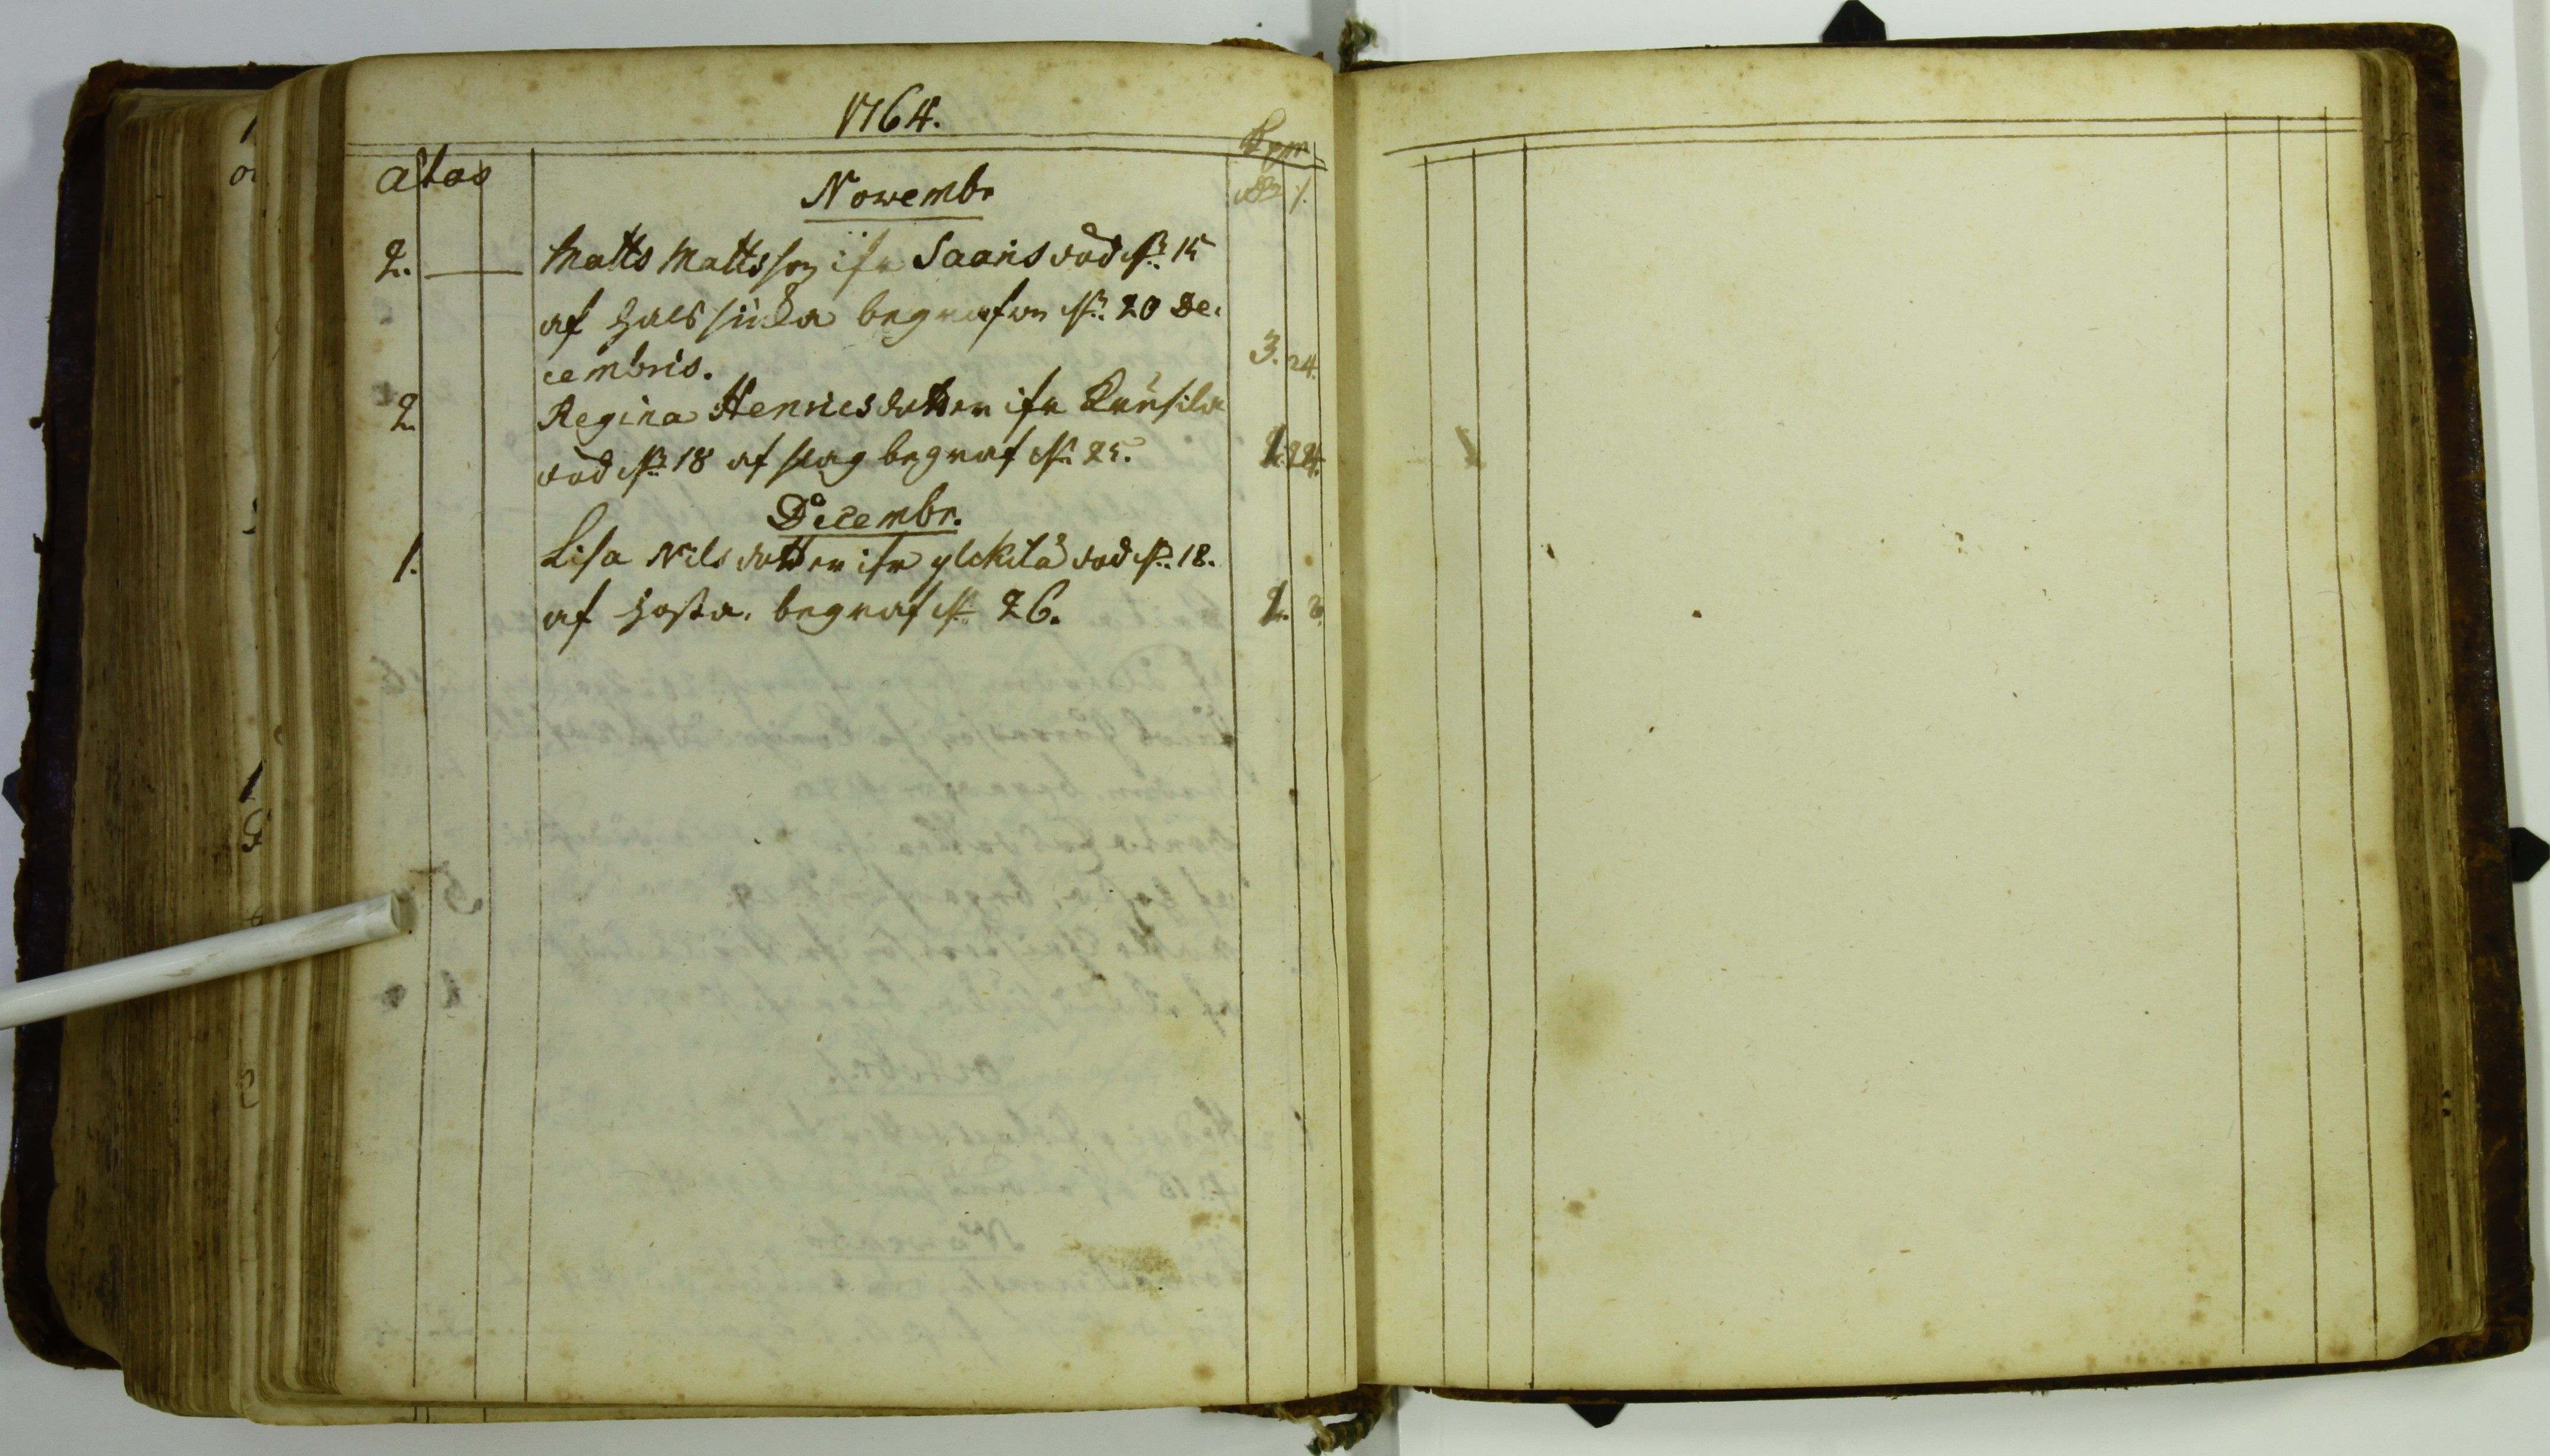 1764.
ætas
Kpm
Novembr
2. Matts Mattsson ifr Saaris död d. 15
af halssiuka begrafven d. 20 De-
cembris.
3. 24.
2 Regina Henricsdotter ifr
död d. 18 af slag begraf d. 25.
2. 24.
Decembr.
1. Lisa Nilsdotter ifr ylekylä död d. 18.
af hosta. begraf d. 26.
2.